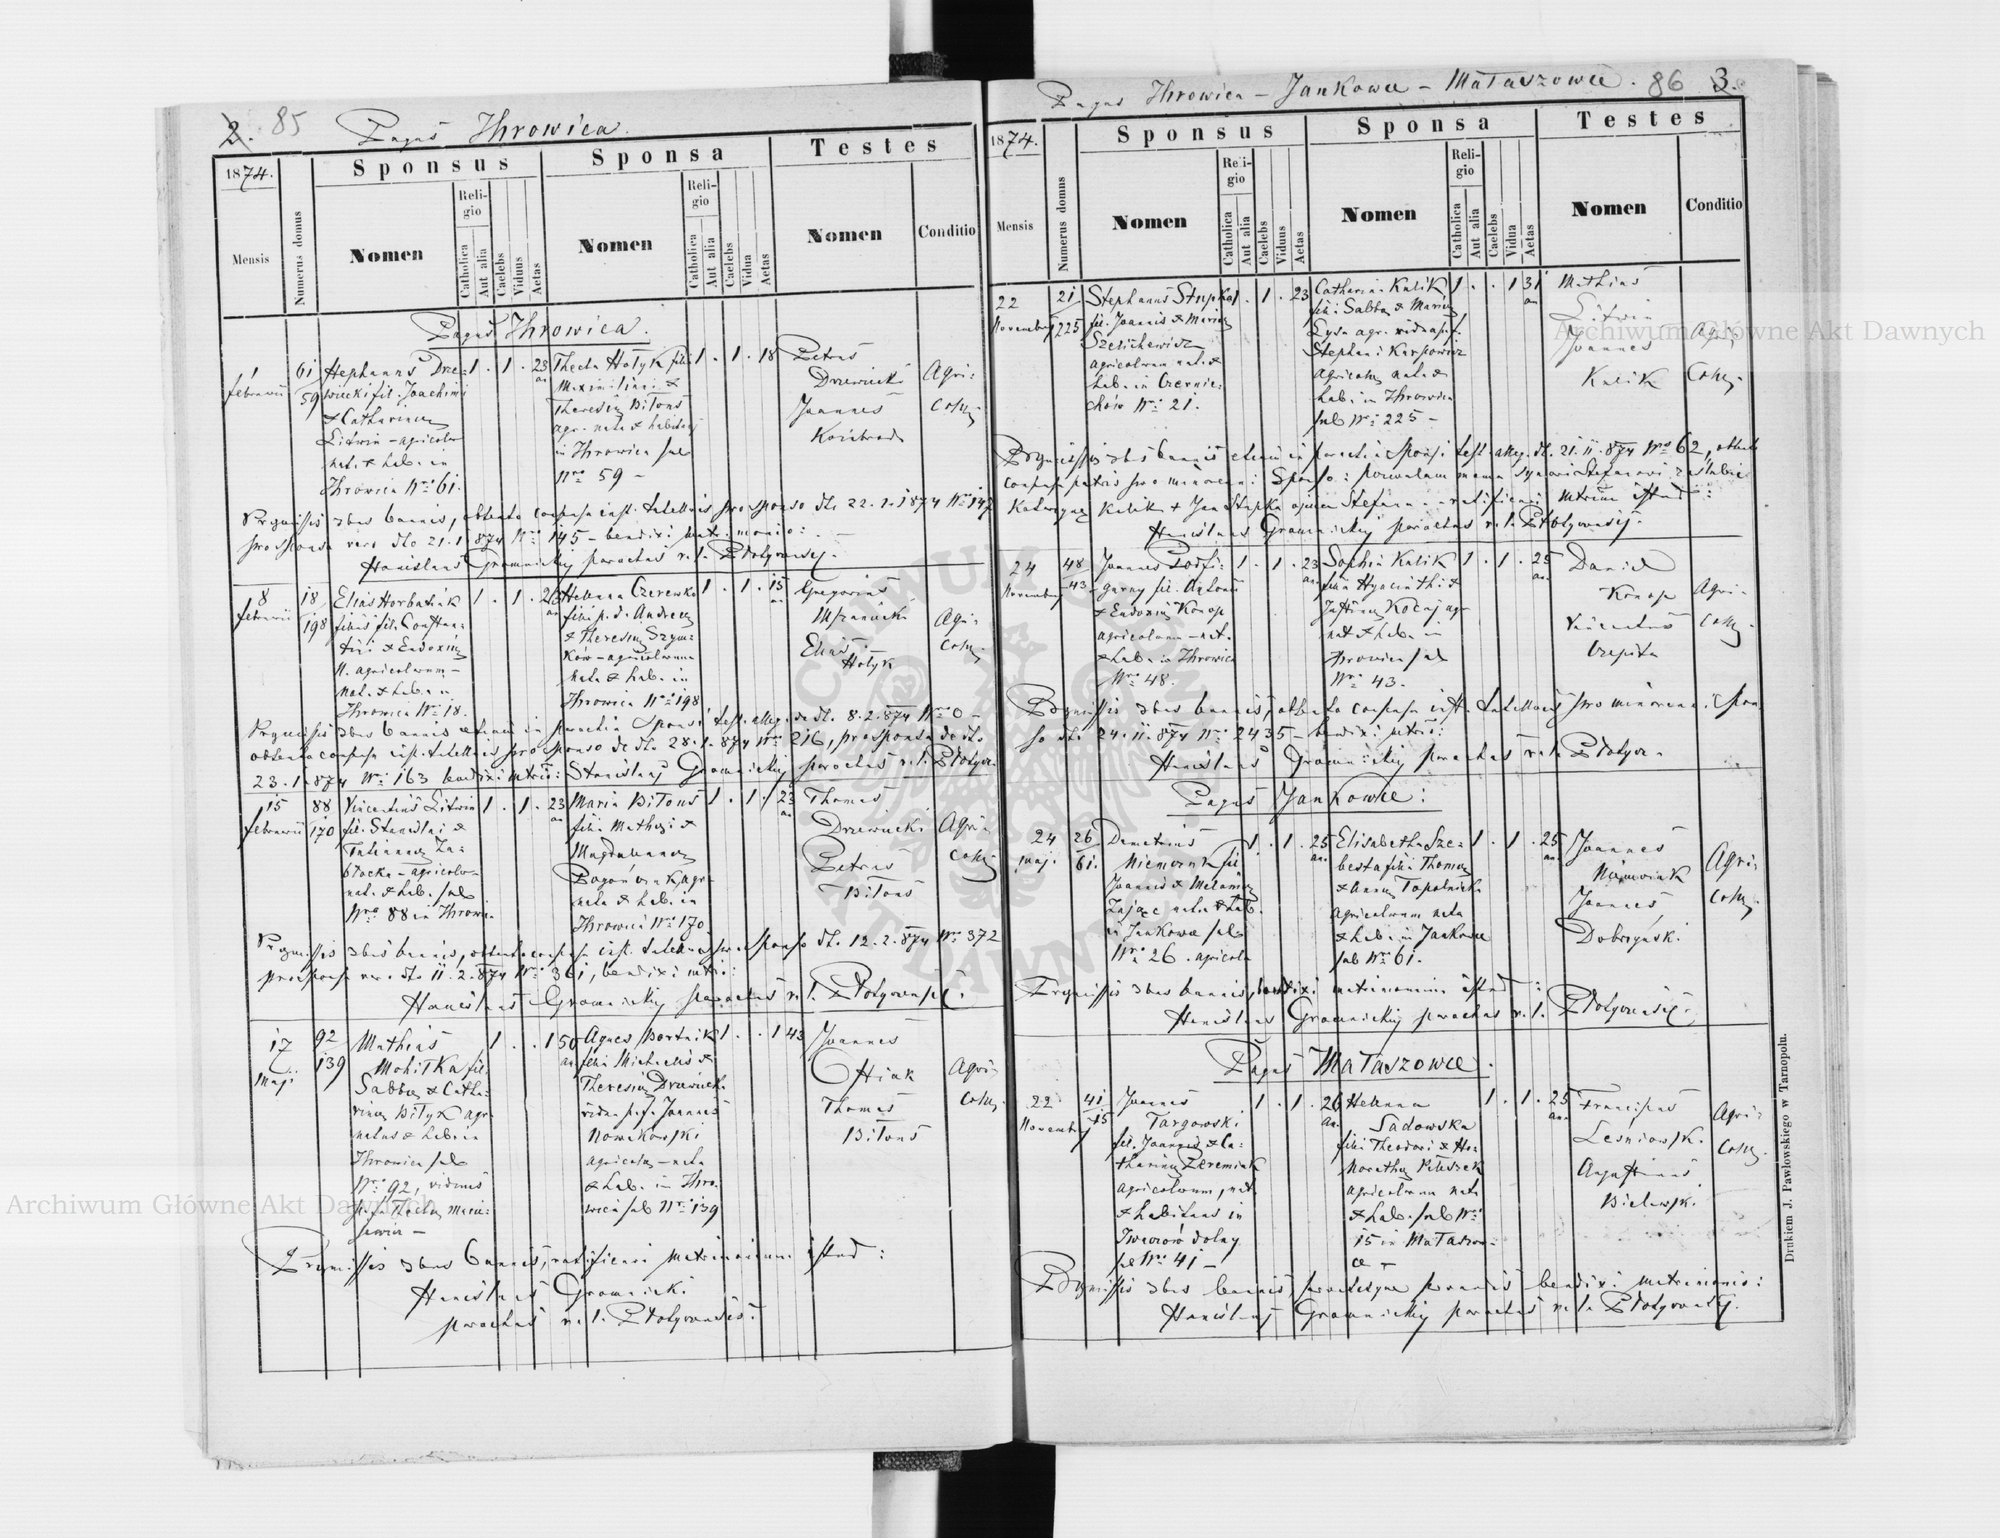 2. 85 Pagus Ihrowica.
1874.
Mensis
Numerus domus
Sponsus
Nomen
Religio
Catholica
Aut alia
Caelebs
Viduus
Aetas
Sponsa
Nomen
Religio
Catholica
Aut alia
Caelebs
Vidua
Aetas
Testes
Nomen
Conditio
Pagus Ihrowica.
1
februarii
61
59
Stephanus Drze-
wiecki fil. Joachimi
& Catharinae
Litwin - agricola
nat. & hab. in
Ihrowica Nro 61.
1 . 1 . 23
an
Thecla Hołyk filia
Maximiliani &
Theresiae Biłous
agr. nata & habitans
in Ihrowica sub
Nro 59 -
1 . 1 . 18
Petrus
Drzewiecki
Joannes
Agri-
colae.
Praemissis 3bus bannis, obtento consensu inst. tutelaris pro sponso dto 22.1.1874 Nro 147
pro sponsa vero dto 21.1.874 Nro 145 - benedixi matrimonio:
Stanislaus Gromnicki parochus r. l. Płotycensis.
8
februarii
18
198
Elias Horbatiuk
filius fil. Constan-
tini & Eudoxiae
N. agricolarum -
nat. & hab. in
Ihrowica Nro 18.
1 . 1 . 23
an
Helena Czerewko
filia p. d. Andreae
& Theresiae Szym-
ków - agricolarum
nata & hab. in
Ihrowica Nro 198
1 . 1 . 15
an
Gregorius
Elias
Hołyk
Agri-
colae.
Praemissis 3bus bannis etiam in parochia sponsi test. alleg. de dto 8.2.874 Nro 0 -
obtento consensu inst. tutelaris pro sponso de dto 28.1.874 Nro 216, pro sponsa de dto
23.1.874 Nro 163 benedixi mtrio: Stanislaus Gromnicki parochus r. l. Płotycen.
15
februarii
88
170
Vincentius Litwin
fil. Stanislai &
Tatiannae Za-
błocka - agricola -
nat. & hab. sub
Nro 88 in Ihrowica
1 . 1 . 23
an
Maria Biłous
filia Mathaei &
Magdalenae
agr.
nata & hab. in
Ihrowica Nro 170
1 . 1 . 23
an
Thomas
Drzewiecki
Petrus
Biłous
Agri-
colae
Praemissis 3bus bannis, obtento consensu inst. tutelaris pro sponso dto 12.2.874 Nro 372
pro sponsa vero dto 11.2.874 Nro 361, benedixi mtrio:
Stanislaus Gromnicki parochus r. l. Płotycensis.
17
Maji
92
139
Mathias
Mohitka fil.
Sabbae & Catha-
rinae Biłyk agr.
natus & hab. in
Ihrowica sub
Nro 92, viduus
1 . . 1 50
an
Agnes Bortnik
filia Michaelis &
Theresiae Drzewiecka
vidua p. f. Joannis
Nowakowski
agricolae - nata
& hab. in Ihro-
wica sub Nro 139
1 . . 1 43
Joannes
Thomas
Biłous
Agri-
colae
Praemissis 3bus bannis, ratificavi matrimonium istud:
Stanislaus Gromnicki
parochus r. l. Płotycensis.
Pagus Ihrowica - Jankowce - Małaszowce. 86 3.
1874.
Mensis
Numerus domus
Sponsus
Nomen
Religio
Catholica
Aut alia
Caelebs
Viduus
Aetas
Sponsa
Nomen
Religio
Catholica
Aut alia
Caelebs
Vidua
Aetas
Testes
Nomen
Conditio
22
Novembris
21
225
Stephanus Stupka
fil. Joannis & Mariae
agricolarum nat. &
hab. in Czernie-
chów Nro 21.
1 . 1 . 23
Catharina Kulik
filia Sabbae & Mariae
Łysa agr. vidua p. f.
Stephani Karpowicz
agricolae nata &
hab. in Ihrowica
sub Nro 225 -
1 . . 1 31
an
Mathias
Litwin
Joannes
Kulik
Agri-
colae.
Praemissis 3bus bannis etiam in parochia sponsi test. alleg. dto 21.11.874 Nro 62, obtento
consensu patris pro minorenni Sponso: pozwalam memu synowi Stefanowi zaślubić
Katarzynę Kulik + Jan Stupka ojciec Stefana - ratificavi mtrium istud:
Stanislaus Gromnicki parochus r. l. Płotycensis.
24
Novembris
48
43
Joannes Podfi-
garny fil. Antonii
& Eudoxiae Konop
agricolarum - nat.
& hab. in Ihrowica
Nro 48.
1 . 1 . 23
an
Sophia Kulik
filia Hyacinthi &
Justinae agr.
nat. & hab. in
Ihrowica sub
Nro 43.
1 . 1 . 25
an
Daniel
Konop
Vincentius
Czepita
Agri-
colae
Praemissis 3bus bannis, obtento consensu inst. tutelaris pro minorenni spon-
so dto 24.11.874 Nro 2435 - benedixi mtrio:
Stanislaus Gromnicki parochus r. l. Płotycen.
Pagus Jankowce:
24
Maji
26
61.
Demetrius
Niemczuk fil.
Joannis & Melaniae
Zając natus & hab.
in Jankowce sub
Nro 26. agricola
1 . 1 . 25
an
Elisabetha Sze-
besta filia Thomae
& Annae Topolnicka
agricolarum nata
& hab. in Jankowce
sub Nro 61.
1 . 1 . 25
an
Joannes
Joannes
Dobrzyński
Agri-
colae.
Praemissis 3bus bannis, benedixi matrimonium istud:
Stanislaus Gromnicki parochus r. l. Płotycensis.
Pagus Małaszowce.
22
Novembris
41
15
Joannes
Targowski
fil. Joannis & Ca-
tharinae Zeremiuk
agricolarum, nat.
& habitans in
Iwaczów dolny
sub Nro 41 -
1 . 1 . 26
an
Helena
Sadowska
filia Theodori & Ho-
noratae
agricolarum nata
& hab. sub Nro
15 in Małaszow-
ce -
1 . 1 . 25
an
Franciscus
Lesniowski
Augustinus
Bielawski
Agri-
colae.
Praemissis 3bus bannis, benedixi matrimonio:
Stanislaus Gromnicki parochus r. l. Płotycensis.
Drukiem J. Pawłowskiego w Tarnopolu.
Archiwum Główne Akt Dawnych
Archiwum Główne Akt Dawnych
ARCHIWUM GŁÓWNE AKT DAWNYCH